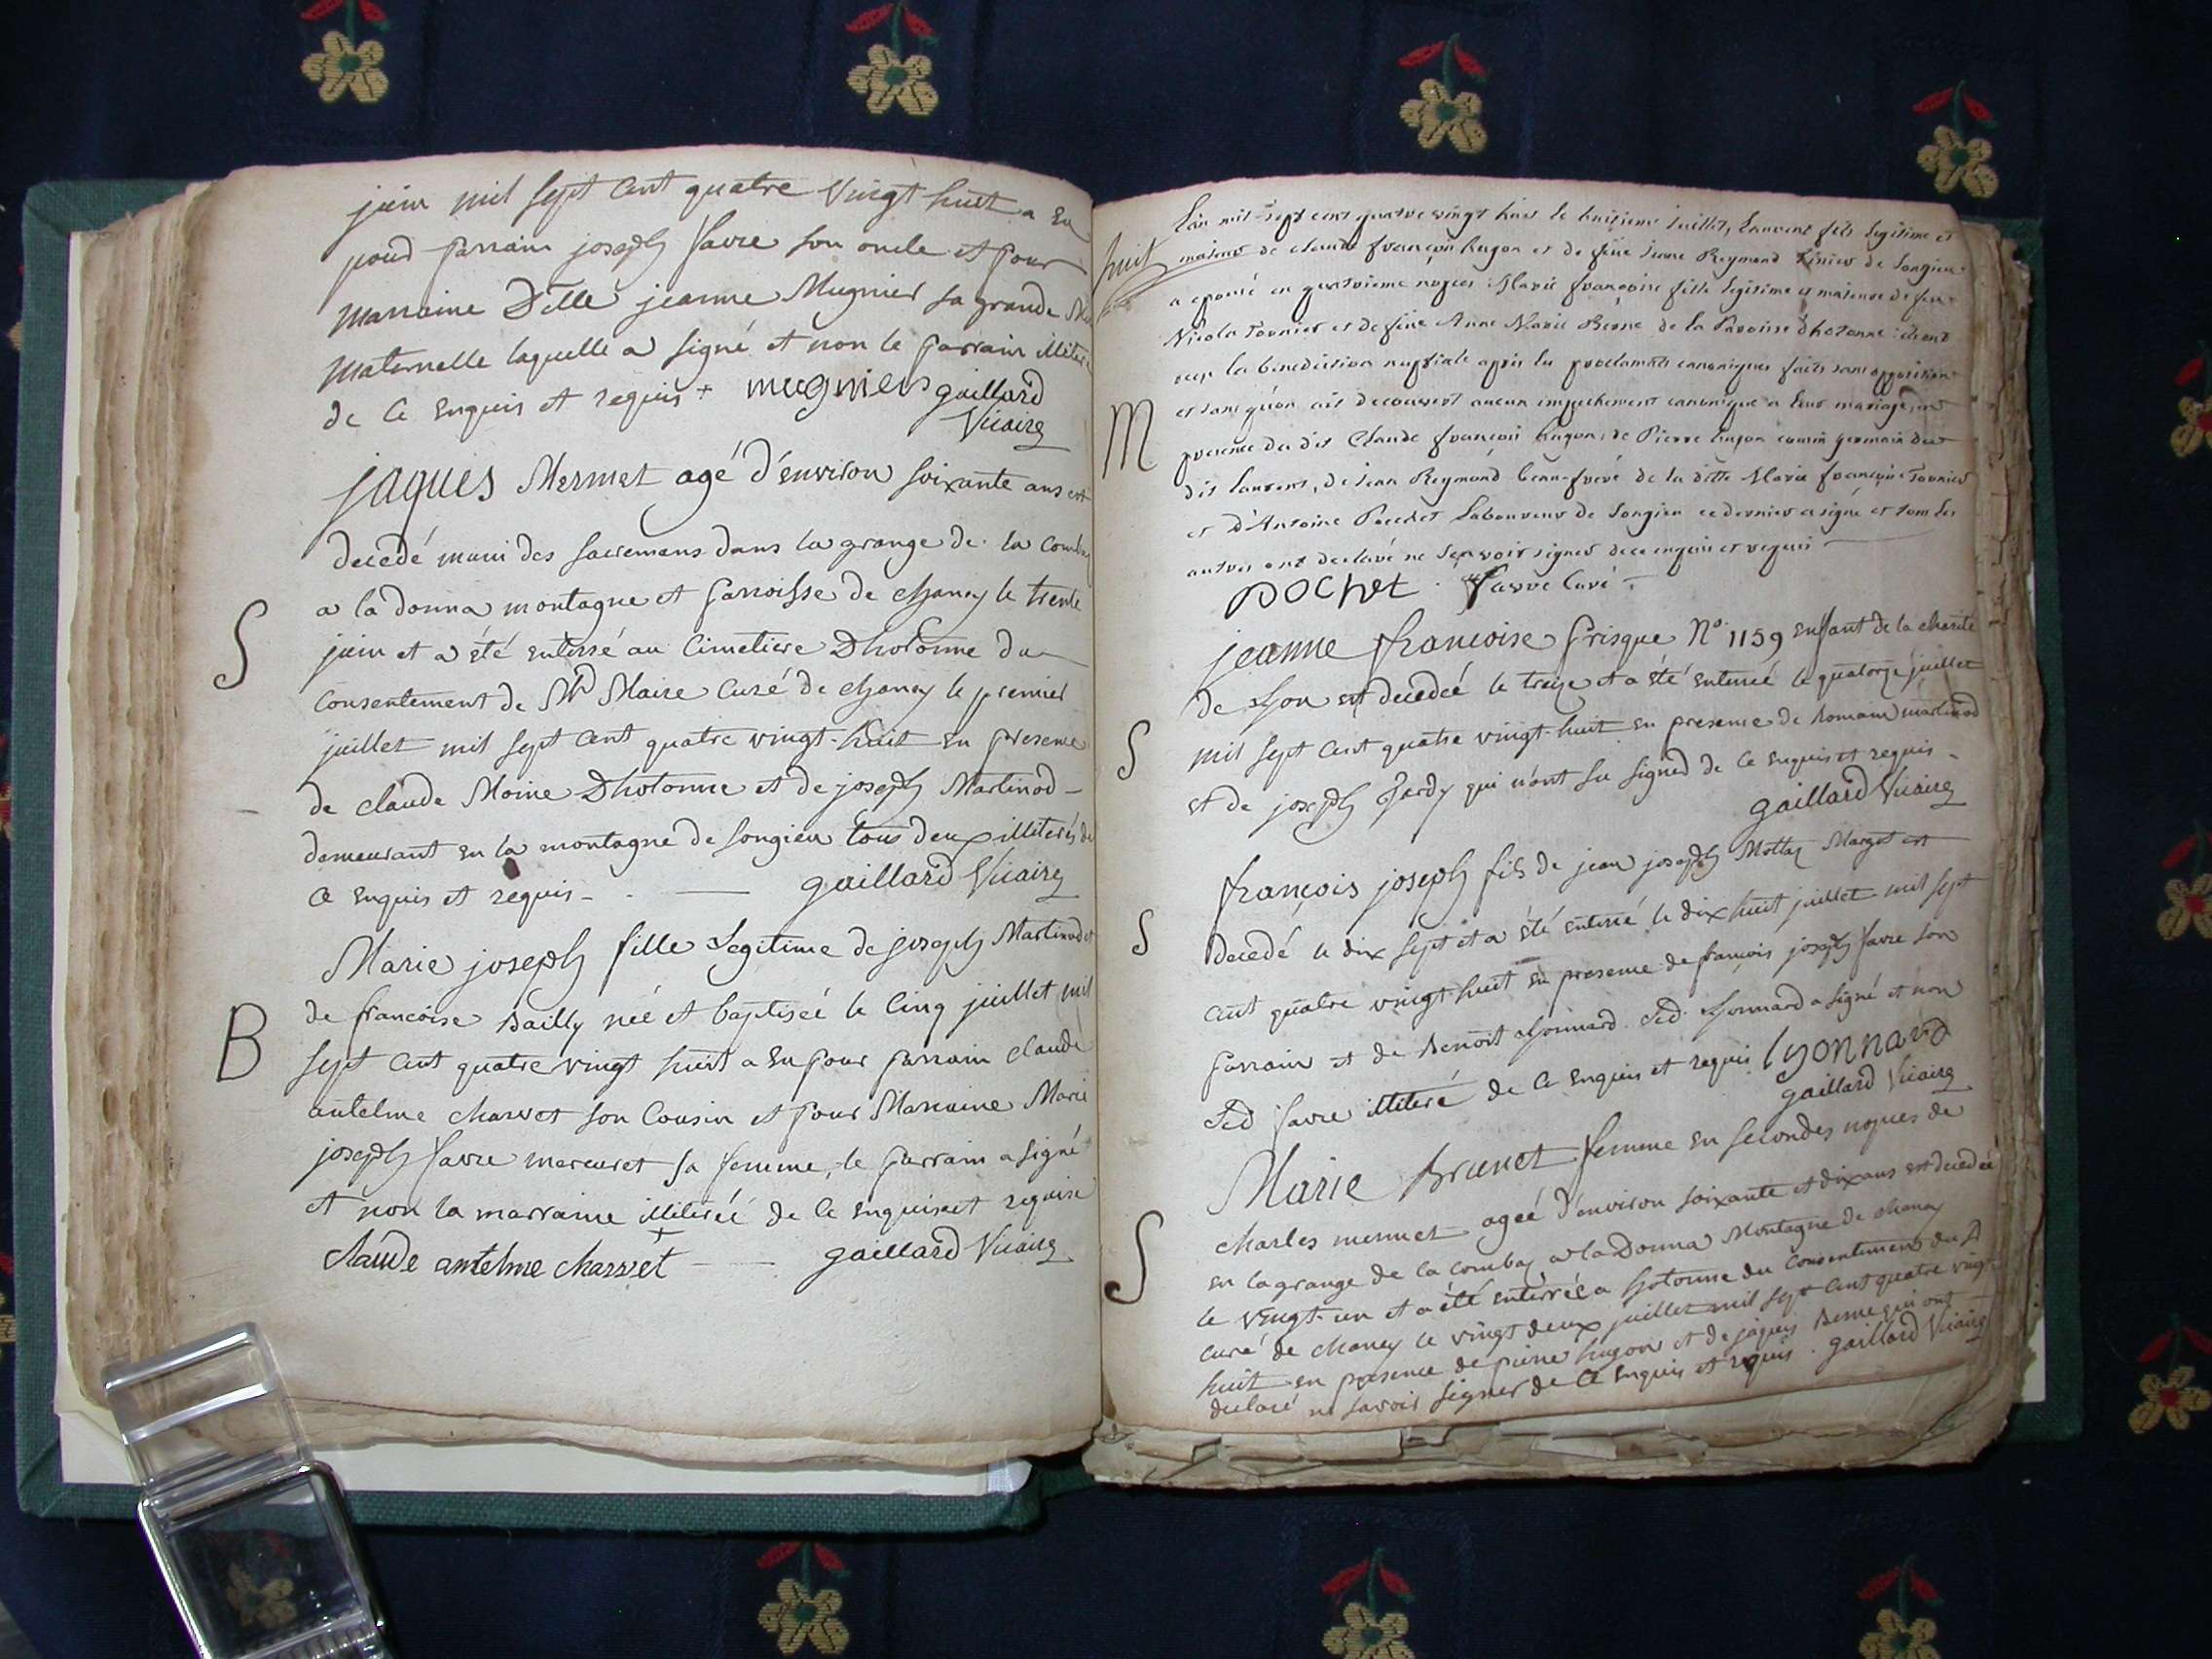 juin mil sept cent quatre vingt huit a eu
poud parrain joseph favre son oncle et pour
marraine Delle jeanne Mugnier sa grande
maternelle laquelle a signé et non le parrain illiteré
de ce enquis et requis + mugniers gaillard
Vicaire
jaques Mermet agé d'environ soixante ans est
decedé muni des sacremens dans la grange de la
a la donna montagne et parroisse de chanay le trente
S
juin et a été enterré au cimetiere Dhotonne du
consentement de Mr Maire curé de chanay le premier
juillet mil sept cent quatre vingt-huit en presence
de claude Moine Dhotonne et de joseph Martinod
demeurant en la montagne de songieu tous deux illiterés de
ce enquis et requis - gaillard Vicaire
Marie joseph fille legitime de joseph Martinod et
B
de francoise Bailly née et baptisée le cinq juillet mil
sept cent quatre vingt huit a eu pour parrain claude
antelme charvet son cousin et pour Marraine Marie
joseph favre mercuret sa femme, le parrain a signé
et non la marraine illiterée de ce enquise et requise
claude antelme charvet - gaillard Vicaire
huit
L'an mil sept cent quatre vingt huit le huitieme juillet, Laurent fils legitime et
majeur de claude françois hugon et de feüe jeanne Reymond de Songieu
a epousé en quatrieme noces Marie françoise fille legitime et majeure de feu
Nicolas Tournier et de feüe Anne Marie Berne de la Paroisse d'hotonne : ils ont
reçu la benediction nuptiale après les proclamats canoniques faits sans opposition
M
et sans qu'on ait decouvert aucun empechement canonique a leur mariage, en
presence du dit Claude françois hugon, de Pierre hugon cousin germain du
dit laurent, de jean Reymond beau-frere de la ditte Marie françoise Tournier
et D'Antoine Pochet Laboureur de Songieu ce dernier a signé et tous les
autres ont declaré ne sçavoir signer de ce enquis et requis
POCHet. favre Curé
jeanne francoise prisque N° 1159 enfant de la charité
de lyon est decedée le treize et a été enterrée le quatorze juillet
S
mil sept cent quatre vingt-huit en presence de Romain martinod
et de joseph jardy qui n'ont su signer de ce enquis et requis
gaillard Vicaire
françois joseph fils de jean joseph Mottaz Margot est
S
decedé le dix sept et a été enterré le dix huit juillet mil sept
cent quatre vingt huit en presence de françois joseph favre son
parrain et de Benoit lyonnard led. lyonnard a signé et non
led favre illiteré de ce enquis et requis lyonnard
gaillard Vicaire
Marie Brunet femme en secondes nopces de
charles mermet agée d'environ soixante et dix ans est decedée
S
en la grange de la combaz a la Donna Montagne de chanay
le vingt-un et a été enterrée a hotonne du consentement du Sr
curé de chanay le vingt deux juillet mil sept cent quatre vingt
huit en presence de pierre hugon et de jaques Berne qui ont
declaré ne savoir signer de ce enquis et requis. gaillard Vicaire